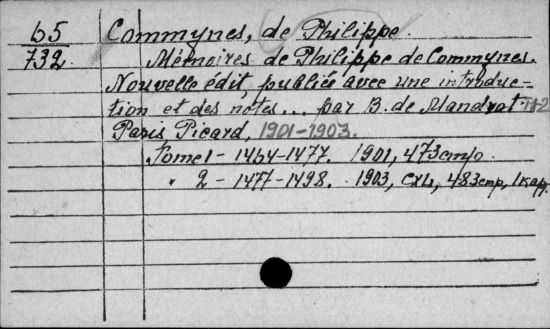 65 Commynes, de Philippe.
732 Mémoires de Philippe de Commynes.
Nouvelle édit, publiée avec une introduc-
tion et des notes... par B. de Mandrot T.1-2
Paris Picard, 1901-1903.
Tome 1 - 1464-1477. 1901, 473 стр.
" 2 - 1477-1498. 1903, CXL, 483 стр, 1 кар.